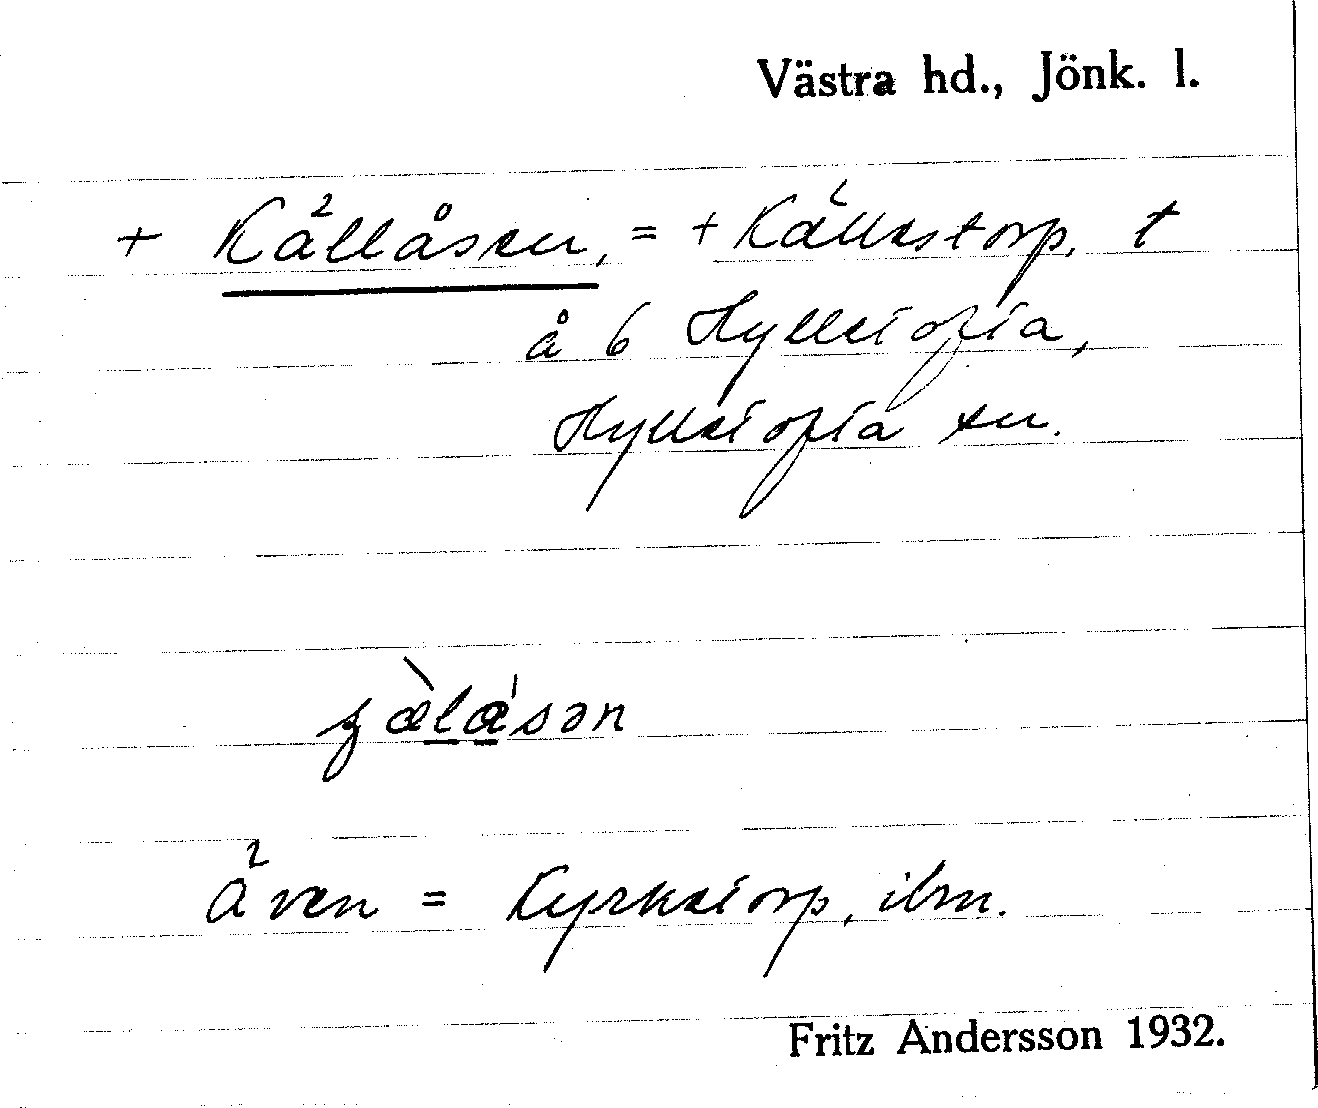 Västra hd., Jönk. l.
+ Källåsen, = + Källetorp, t
å 6 Hylletofta,
Hylletofta sn.
Även = Kyrketorp, ibm.
Fritz Andersson 1932.